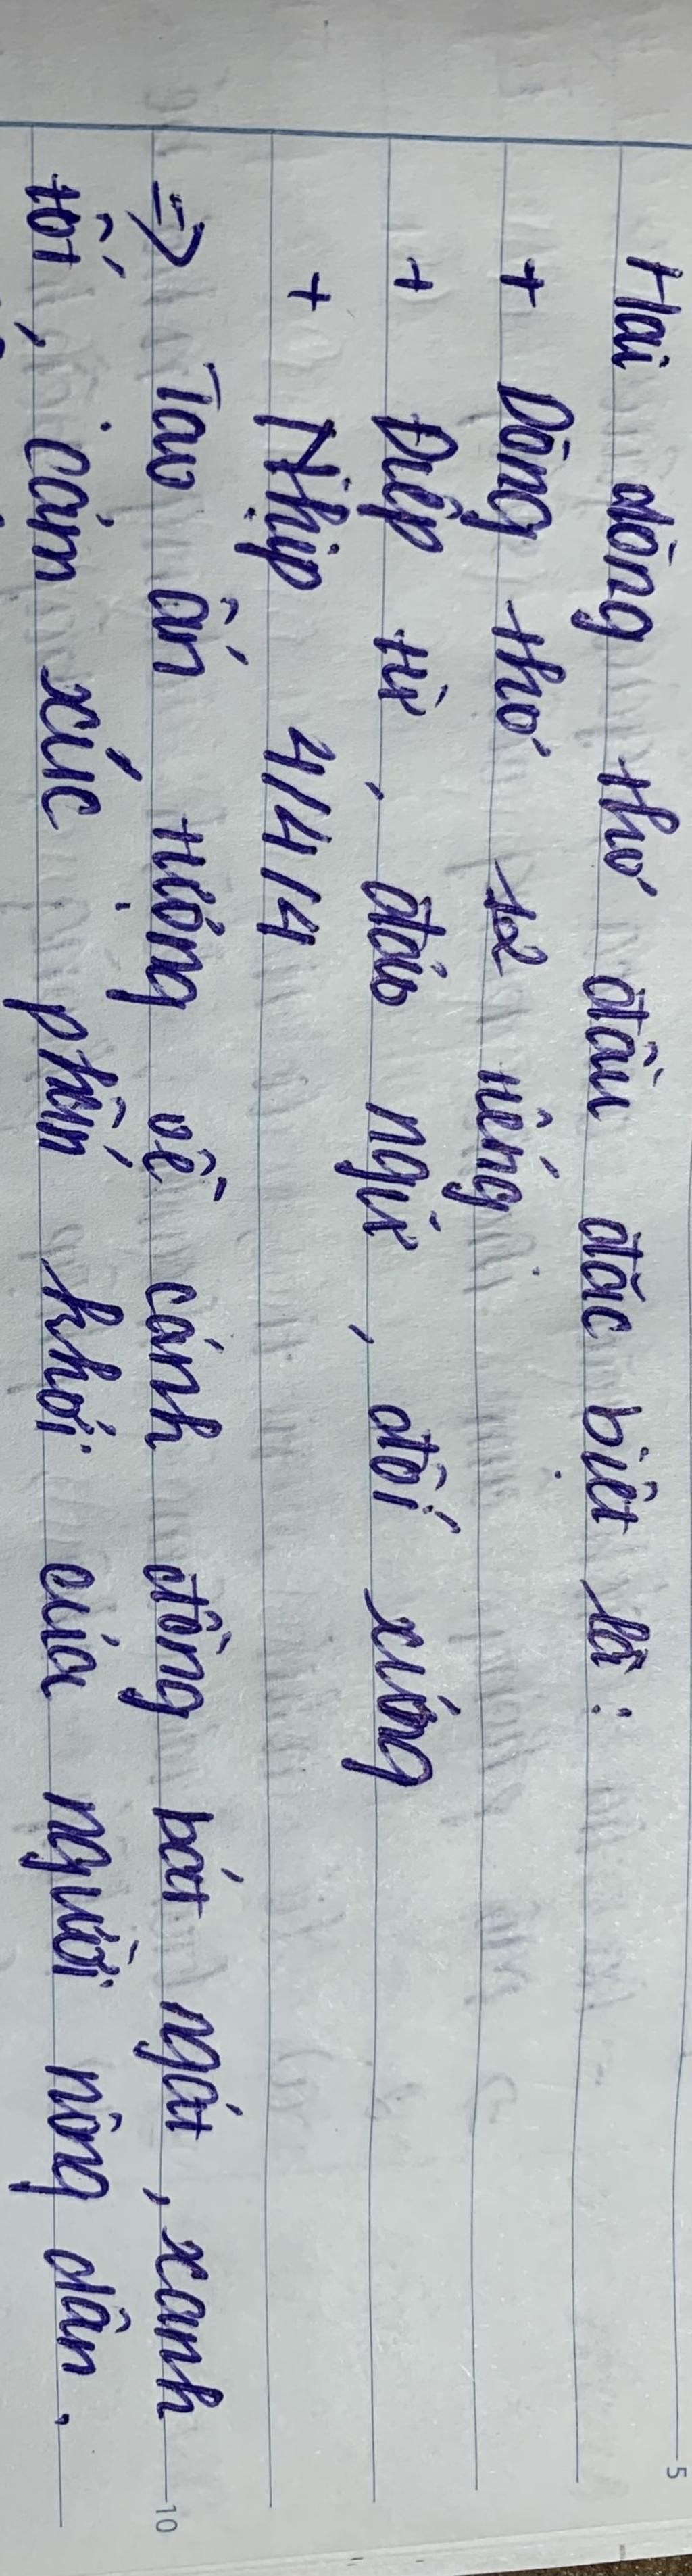 Hai dòng thơ đầu đặc biệt là:
+ Dòng thơ 12 tiếng
+ Điệp từ, đảo ngữ, đối xứng
+ Nhịp 4/4/4
=> Tạo ấn tượng về cánh đồng bát ngát, xanh
tốt, cảm xúc phấn khởi của người nông dân.
5
10